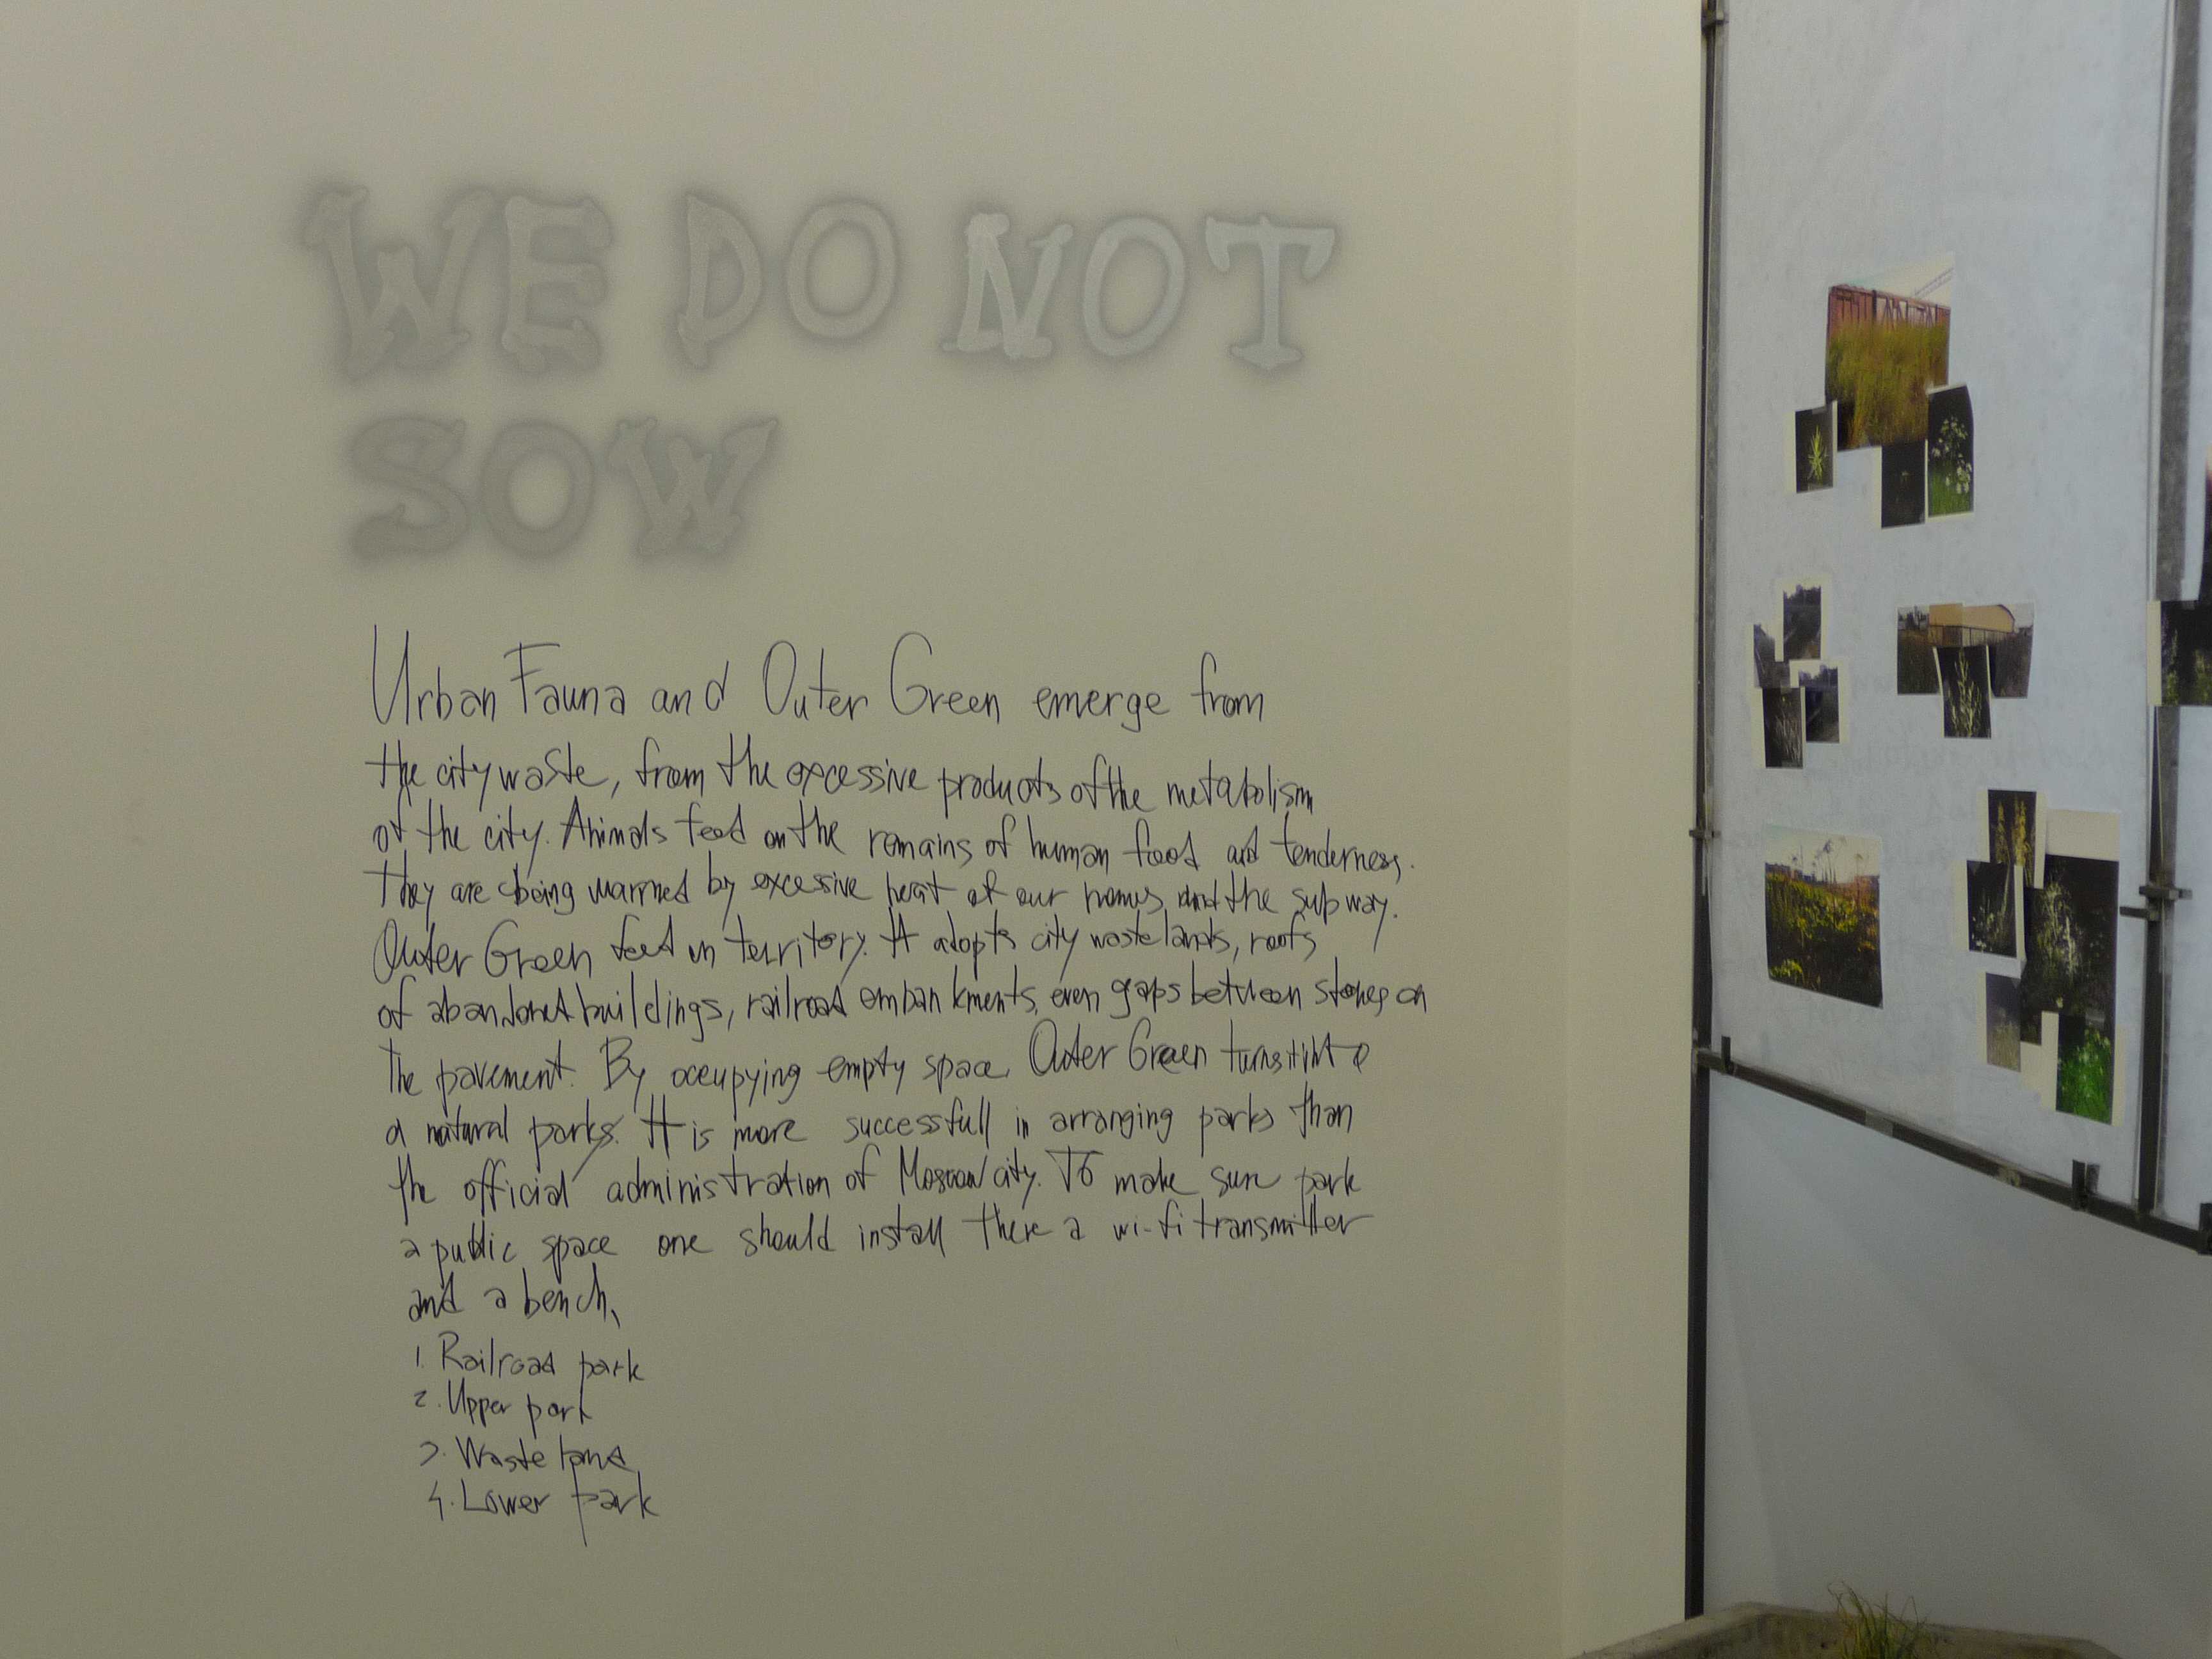 WE DO NOT
SOW
Urban Fauna and Outer Green emerge from
the city waste, from the excessive products of the metabolism
of the city. Animals feed on the remains of human food and tenderness.
They are being warmed by excessive heat of our homes and the subway.
Outer Green feed on territory. It adopts city wastelands, roofs
of abandoned buildings, railroad embankments, even gaps between stones on
the pavement. By occupying empty space, Outer Green turns it into
a natural parks. It is more successfull in arranging parks than
the official administration of Moscow city. To make sure park
a public space one should install there a wi-fi transmitter
and a bench.
1. Railroad park
2. Upper park
3. Waste land
4. Lower park